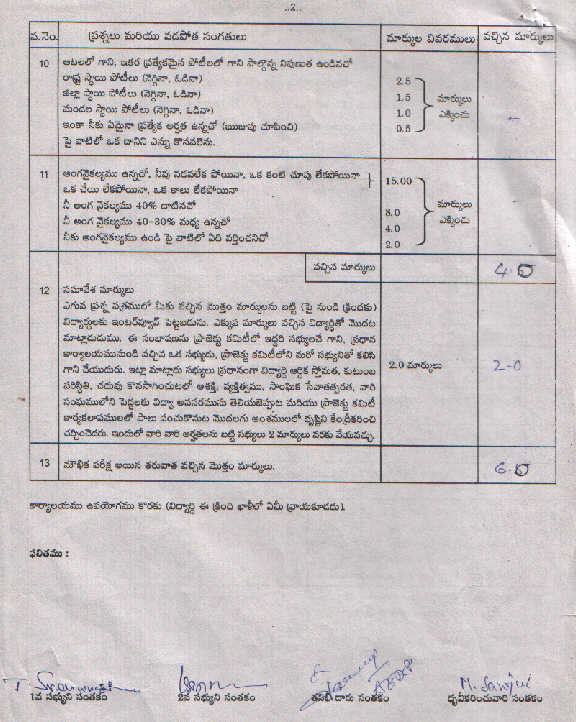 ..2..
వ.నెం. ప్రశ్నలు మరియు వడపోత సంగతులు మార్కుల వివరములు వచ్చిన మార్కులు
10 ఆటలలో గాని, ఇతర ప్రత్యేకమైన పోటీలలో గాని పాల్గొన్న నిపుణుత ఉండినచో
రాష్ట్ర స్థాయి పోటీలు (నెగ్గినా, ఓడినా) 2.5
జిల్లా స్థాయి పోటీలు (నెగ్గినా, ఓడినా) 1.5 మార్కులు
మండల స్థాయి పోటీలు (నెగ్గినా, ఓడినా) 1.0 ఎక్కించు
ఇంకా నీకు ఏమైనా ప్రత్యేక అర్హత ఉన్నచో (ఋజువు చూపించి) 0.5
పై వాటిలో ఒక దానిని ఎన్ను కొనవలెను.
11 అంగవైకల్యము ఉన్నచో, నీవు నడవలేక పోయినా, ఒక కంటి చూపు లేకపోయినా
ఒక చేయి లేకపోయినా, ఒక కాలు లేకపోయినా 15.00
నీ అంగ వైకల్యము 40% దాటినచో 8.0 మార్కులు
నీ అంగ వైకల్యము 40-30% మధ్య ఉన్నచో 4.0 ఎక్కించు
నీకు అంగవైకల్యము ఉండి పై వాటిలో ఏది వర్తించనిచో 2.0
వచ్చిన మార్కులు 4.0
12 సమావేశ మార్కులు
ఎగువ ప్రశ్న పత్రములో మీకు వచ్చిన మొత్తం మార్కులను బట్టి (పై నుండి క్రిందకు)
విద్యార్థులకు ఇంటర్వ్యూలో పెట్టబడును. ఎక్కువ మార్కులు వచ్చిన విద్యార్థితో మొదట
మాట్లాడుదుము. ఈ సంభాషణను ప్రాజెక్టు కమిటీలో ఇద్దరి సభ్యులచే గాని, ప్రధాన
కార్యాలయమునుండి వచ్చిన ఒక సభ్యుడు, ప్రాజెక్టు కమిటీలోని మరో సభ్యునితో కలిసి
గాని చేయుదురు. ఇట్లా మాట్లాడు సభ్యులు ప్రధానంగా విద్యార్థి ఆర్థిక స్తోమత, కుటుంబ 2.0 మార్కులు 2-0
పరిస్థితి, చదువు కొనసాగించుటలో ఆశక్తి, వ్యక్తిత్వము, సాంఘిక సేవాతత్పరత, వారి
సంఘములోని పెద్దలకు విద్యా అవసరమును తెలియజెప్పుట మరియు ప్రాజెక్టు కమిటీ
కార్యకలాపములలో పాలు పంచుకొనుట మొదలగు అంశములలో దృష్టిని కేంద్రీకరించి
చర్చించెదరు. ఇందులో వారి వారి అర్హతలను బట్టి సభ్యులు 2 మార్కులు వరకు వేయవచ్చు.
13 మౌఖిక పరీక్ష అయిన తరువాత వచ్చిన మొత్తం మార్కులు. 6.0
కార్యాలయము ఉపయోగము కొరకు (విద్యార్థి ఈ క్రింది ఖాళీలో ఏమీ వ్రాయకూడదు).
ఫలితము :
M. Sarojini
1వ సభ్యుని సంతకం 2వ సభ్యుని సంతకం తనిఖీ దారు సంతకం ధృవీకరించువారి సంతకం